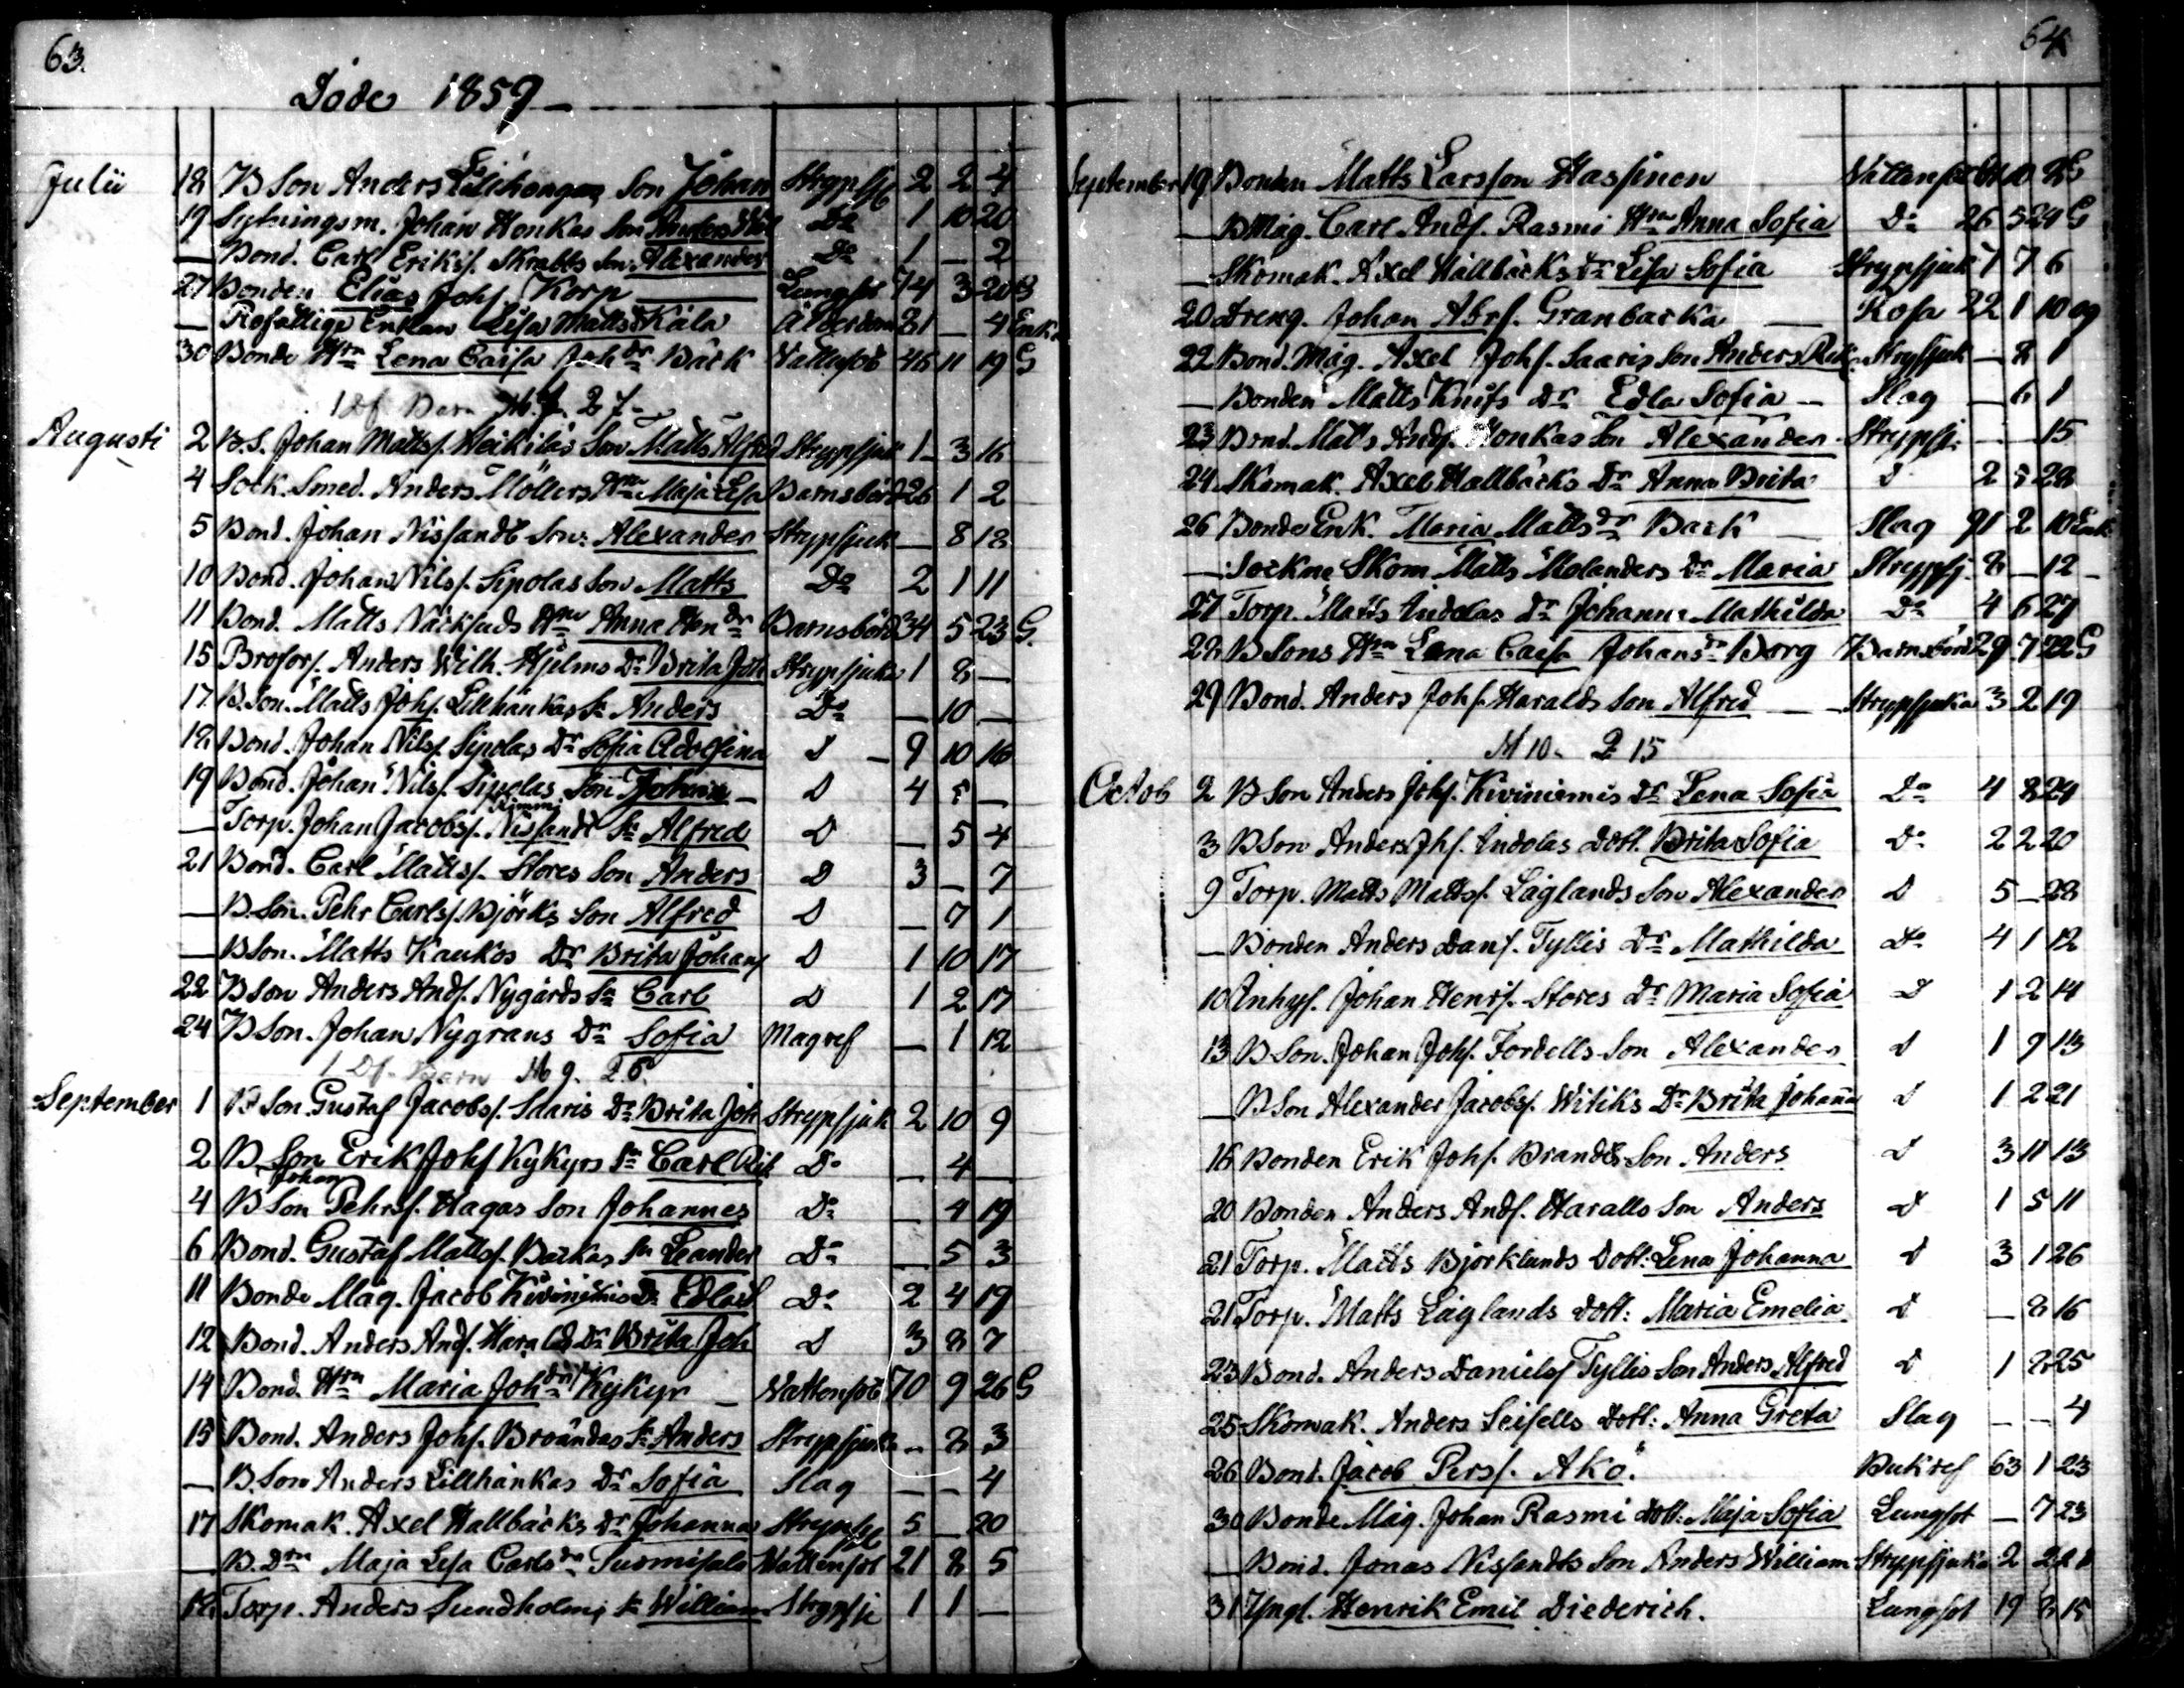 63.
Döde 1859
Julii 18 B Son Anders Lillhongas Son Johan Strypsj 2 2 4
19 Sytningsm. Johan Honkas Son Anders Do 1 10 20
— Bond. Carl Erikss. Skrabbs Son Alexander Do 1 — 2
27 Bonden Elias Johs. Korp Lungsot 74 3 20
— Rofattige Enkan Lisa Matts Kåla Ålderdom 81 — 4 Enka
30 Bonde Hru Lena Caisa Joh dr Bäck Vattusot 46 11 19 G
1 Df. Barn M. 7. Q 7
Augusti 2 B.S. Johan Mattss. Heikilas Son Matts Alfred Strypsjuk 1 3 16
4 Sock. Smed. Anders Möllers Hru Maja Lisa Barnsbörd 26 1 2
5 Bond. Johan Nissandts Son: Alexander Strypsjuk — 8 18
10 Bond. Johan Nilss. Sipolas Son Matts Do 2 1 11
11 Bond. Matts Näcksuds Hru Anna Hen dr Barnsbörd 34 5 23 G.
15 Brofors. Anders Wilh. Hjelms Dr Brita Joh Strypsjuka 1 8 —
17 B. Son. Matts Johs. Lillhankas Sn Anders Do — 10 —
18 Bond. Johan Nilss. Sipolas Dr Sofia Adolfina D — 9 10 16
19 Bond. Johan Nilss. Sipolas Son Johan D 4 5 —
— Torp. Johan Jacobss. Nissandt Sn Alfred D — 5 4
21 Bond. Carl Mattss. Stores Son Anders D 3 — 7
— B. Son. Pehr Carlss. Björks Son Alfred D — 7 1
— B Son. Matts Kaukos Dr Brita Johans D 1 10 17
22 B Son Anders Ands. Nygårds Sn Carl D 1 2 17
24 B Son. Johan Nygrans Dr Sofia Magref — 1 12
1 Df. Barn M 9. Q 6.
September 1 B Son Gustaf Jacobss. Saaris Dr Brita Joh Strypsjuk 2 10 9
2 B Son Erik Johs Kykyrs Sn Carl Do 4 —
Johan
4 B Son Pehrss. Hagas Son Johannes Do — 4 19
6 Bond. Gustaf Mattss. Backas Sn Leander Do — 5 3
11 Bonde Måg. Jacob Kiviniemis Dr Edla S Do 2 4 19
12 Bond. Anders Ands. Haralds Dr Brita Joh D 3 8 7
14 Bond. Hru Maria Joh dr Kykyr — Vattensot 70 9 26 G
15 Bond. Anders Johs. Broändas Sn Anders Strypsjuka — 8 3
— B. Son Anders Lillhankas Dr Sofia Slag — — 4
17 Skomak. Axel Hallbäcks Dr Johanna Strypsj 5 — 20
— B. Drn Maja Lisa Carls dr Tuomisala Vattensot 21 8 5
18 Torp. Anders Sundholms Sn William Strypsj 1 1 —
64
September 19 Bonden Matts Larsson Hassinen Vattensot 10 8 G
— B Måg. Carl Ands. Rasmi Hru Anna Sofia Do 26 5 24 G
— Skomak. Axel Hallbäcks Dr Lisa Sofia Strypsjuk 1 7 6
20 Dreng. Johan Abrs. Granbacka — Rosa 22 1 10 og
22 Bond. Måg. Axel Johs. Saaris Son Anders Strypsjuk — 8 1
— Bonden Matts Knifs Dr Edla Sofia — Slag — 6 1
23 Bond. Matts Ands. Honkas Son Alexander Strypsj. — — 15
24 Skomak. Axel Hallbäcks Dr Anna Brita D 2 5 28
26 Bonde Enk. Maria Matts dr Back — Slag 91 2 10 Enk
— Sockne Skom Matts Molanders Dr Maria Strypsj. 8 — 12
27 Torp. Matts Indolas Dr Johanna Mathilda Do 4 6 27
28 B Sons Hru Lena Caisa Johans dr Borg Barnsbörd 29 7 22 G
29 Bond. Anders Johs. Haralds Son Alfred — Strypsjuka 3 2 19
M 10. Q 15
Octob 2 B Son Anders Johs. Kiviniemis Dr Lena Sofia Do 4 8 24
3 B Son Anders Johs. Indolas Dott. Brita Sofia Do 2 2 20
9 Torp. Matts Mattss. Låglands Son Alexander D 5 — 28
— Bonden Anders Dans. Tyllis Dr Mathilda Do 4 1 12
10 Inhys. Johan Henrs. Stores Dr Maria Sofia D 1 2 14
13 B Son. Johan Johs. Fordells Son Alexander D 1 9 13
— B Son Alexander Jacobss. Witiks Dr Brita Johanna D 1 2 21
16 Bonden Erik Johs. Brandts Son Anders D 3 11 13
20 Bonden Anders Ands. Haralls Son Anders D 1 5 11
21 Torp. Matts Björklunds Dott: Lena Johanna D 3 1 26
21 Torp. Matts Låglands Dott: Maria Emelia D — 8 16
23 Bond. Anders Daniels Tyllis Son Anders Alfred D 1 8 25
25 Skomak. Anders Seisells Dott: Anna Greta Slag — — 4
26 Bond. Jacob Perss. Akö. Bukref 63 1 23
30 Bonde Måg. Johan Rasmi Dott: Maja Sofia Lungsot — 7 23
— Bond. Jonas Nissandts Son Anders William Strypsjuka 2
31 Yngl. Henrik Emil Diederich. Lungsot 19 8 15